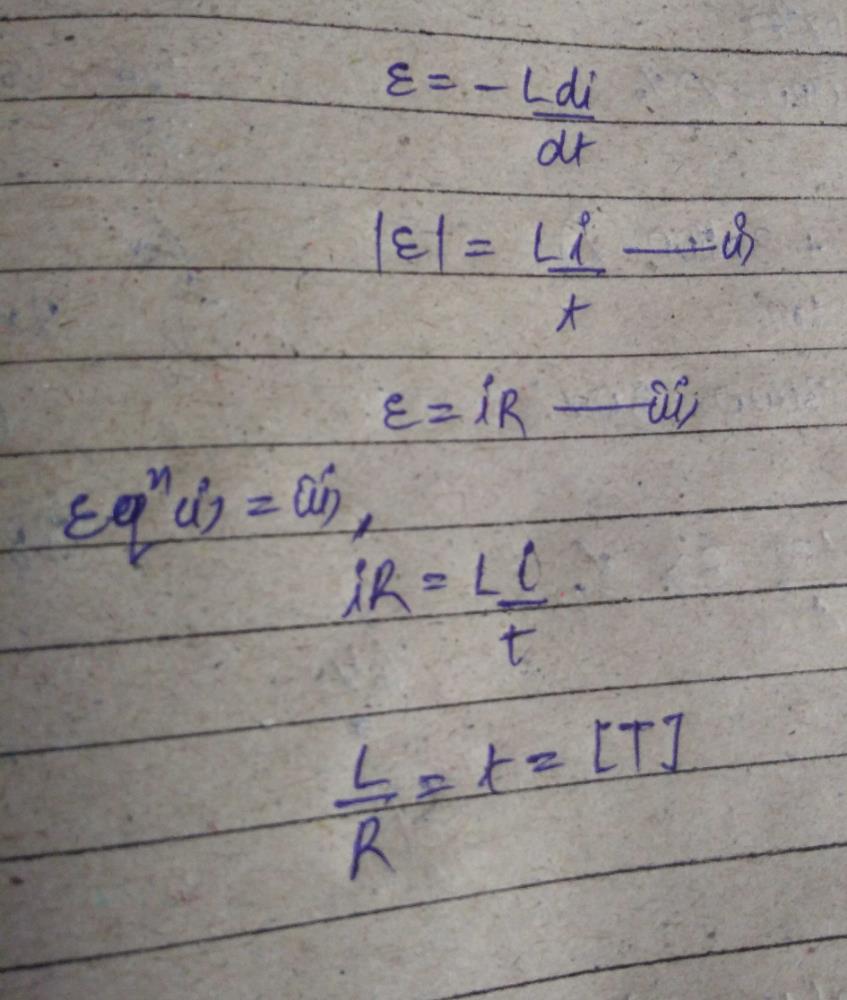 ε = - Ldi/dt
|ε| = Li/t —— (i)
ε = iR —— (ii)
Eqⁿ (i) = (ii),
iR = L i/t .
L/R = t = [T]